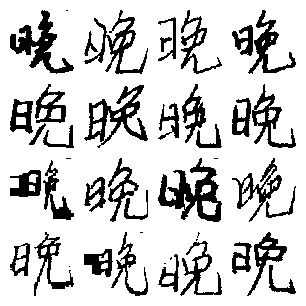 晚晚晚晚
晚晚晚晚
晚晚晚晚
晚晚晚晚